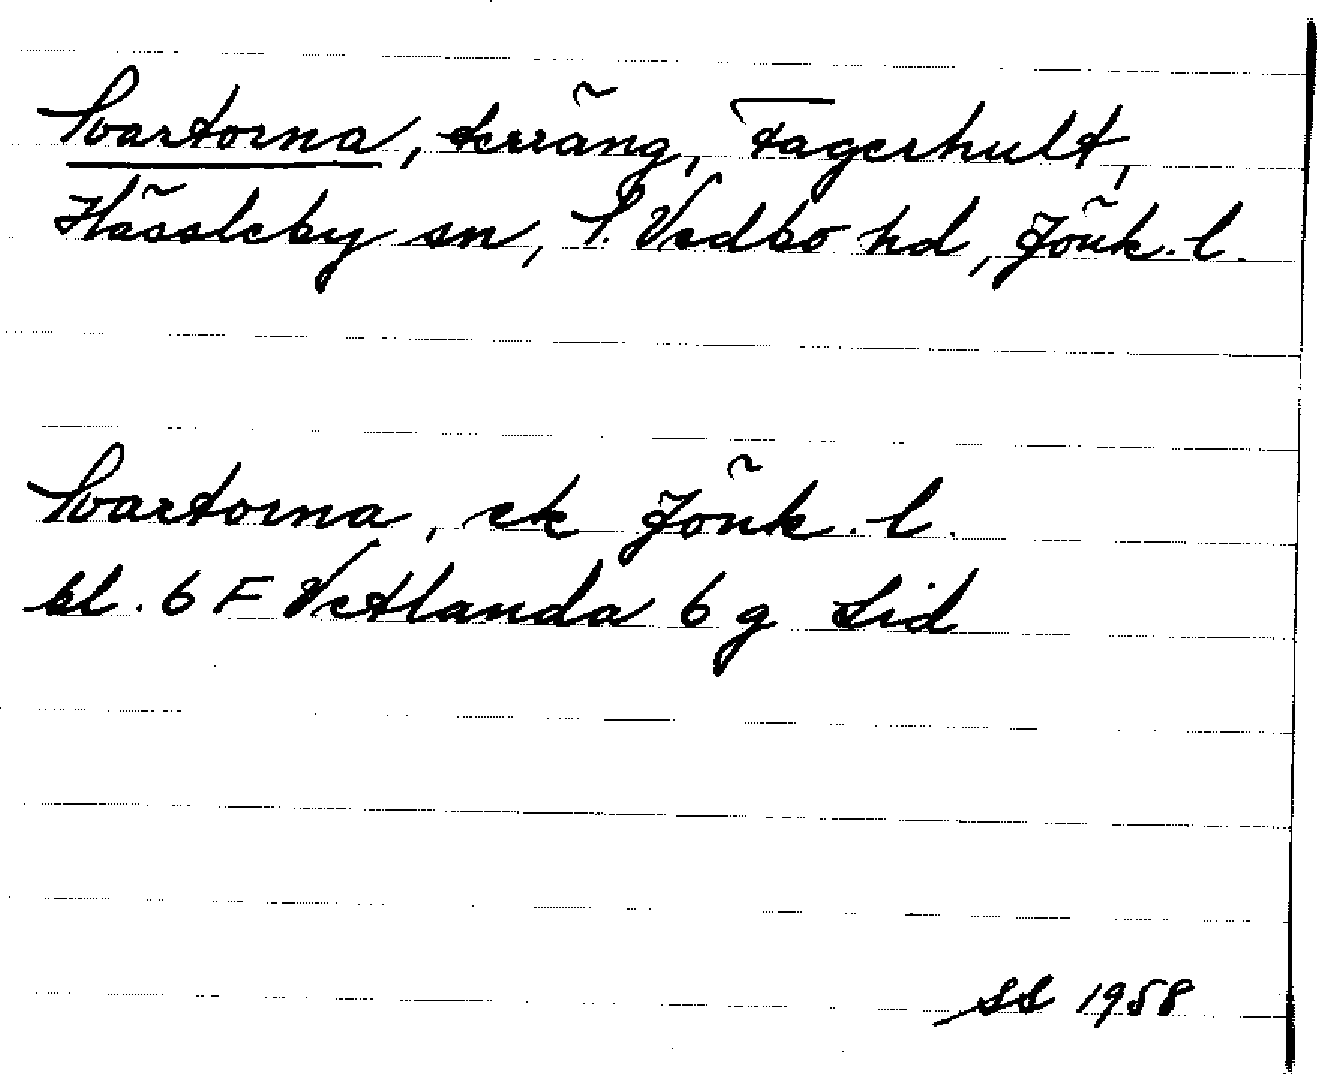 Svartorna, terräng, Fagerhult,
Hässleby sn, S. Vedbo hd, Jönk. l.
Svartorna, ek Jönk. l.
bl. 6 F Vetlanda 6 g Lid
SL 1958